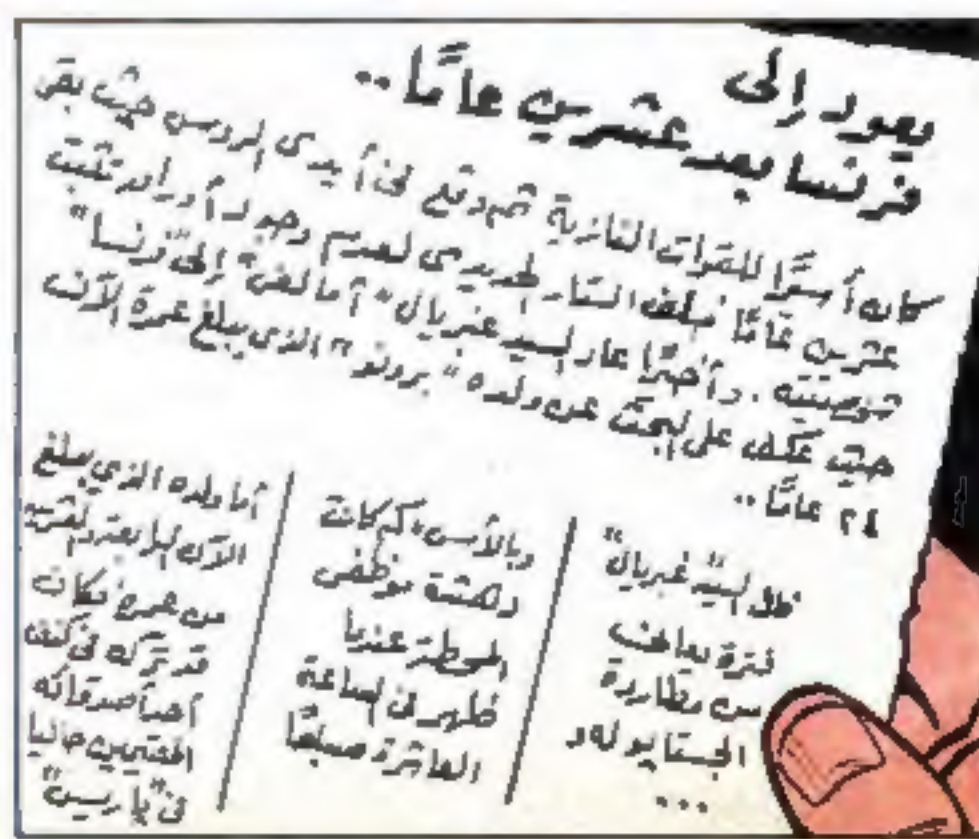 يعود إلى
فرنسا بعد عشرين عامًا..
كان أسيرًا للقوات النازية ثم وقع في أيدي الروس حيث بقى
عشرين عامًا خلف الستار الحديدى لعدم وجود أوراق تثبت
شخصيته. وأخيرًا عاد السيد غبريال "أمالفى" إلى "فرنسا"
حيث عكف على البحث عن ولده "برونو" الذي يبلغ عمره الآن
٢٤ عامًا..
ظل السيد "غبريال"
فترة يعانى
من مطاردة
الجستابو له و
...
وبالأمس، كم كانت
دهشة موظفى
المحطة عندما
ظهر في الساعة
العاشرة صباحًا
أما ولده الذي يبلغ
الآن الرابعة والعشرين
من عمره فكان
قد تركه في كنف
أحد أصدقائه
المقيمين حاليا
فى "باريس"